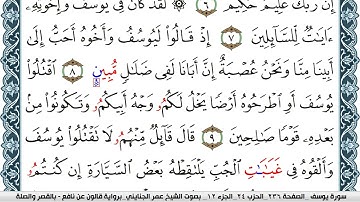 إِنَّ رَبَّكَ عَلِيمٌ حَكِيمٌ ٦ لَّقَدْ كَانَ فِي يُوسُفَ وَإِخْوَتِهِۦ
ءَايَٰتٌ لِّلسَّآئِلِينَ ٧ إِذْ قَالُواْ لَيُوسُفُ وَأَخُوهُ أَحَبُّ إِلَىٰ
أَبِينَا مِنَّا وَنَحْنُ عُصْبَةٌ إِنَّ أَبَانَا لَفِي ضَلَٰلٖ مُّبِينٍ ٨ اُقْتُلُواْ
يُوسُفَ أَوِ اِطْرَحُوهُ أَرْضٗا يَخْلُ لَكُمُۥ وَجْهُ أَبِيكُمُۥ وَتَكُونُواْ مِنۢ
بَعْدِهِۦ قَوْمٗا صَٰلِحِينَ ٩ قَالَ قَآئِلٌ مِّنْهُمُۥ لَا تَقْتُلُواْ يُوسُفَ
وَأَلْقُوهُ فِي غَيَٰبَٰتِ اِلْجُبِّ يَلْتَقِطْهُ بَعْضُ اُلسَّيَّارَةِ إِن كُنتُمُۥ
سورة يوسف . الصفحة ٢٣٦ . الحزب ٢٤ . الجزء ١٢ . بصوت الشيخ عمر الجنايني . برواية قالون عن نافع - بالقصر والصلة